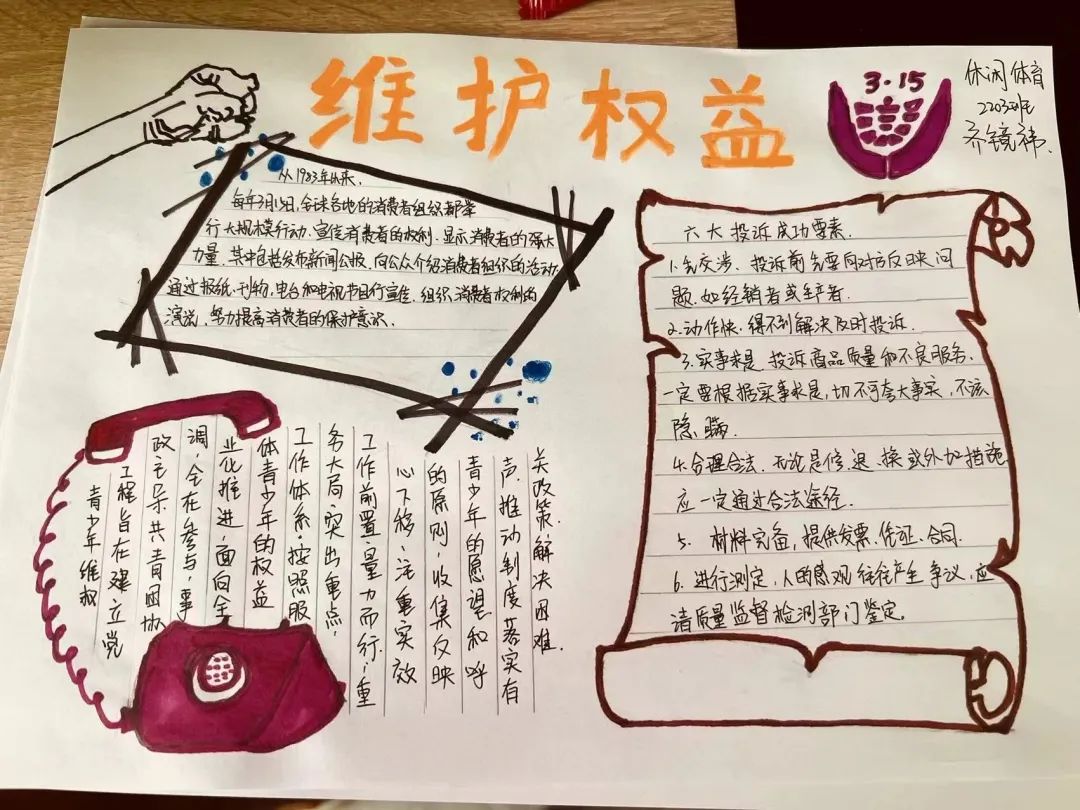 维护权益
3·15
休闲体育
2203班
齐镜祎
从1983年以来，
每年3月15日，全球各地的消费者组织都举
行大规模行动，宣传消费者的权利，显示消费者的强大
力量，其中包括发布新闻公报，向公众介绍消费者组织的活动，
通过报纸、刊物，电台和电视节目行宣传，组织消费者权利的
演说，努力提高消费者的保护意识．
六大投诉成功要素．
1.先交涉，投诉前先要向对方反映问
题，如经销者或生产者．
2.动作快，得不到解决及时投诉．
3.实事求是，投诉商品质量和不良服务，
一定要根据实事求是，切不可夸大事实，不该
隐瞒．
4.合理合法，无论是修、退、换或外加措施
应一定通过合法途径．
5．材料完备，提供发票、凭证、合同．
6.进行测定，人的感观往往产生争议，应
请质量监督检测部门鉴定。
青少年维权
工程旨在建立党
政主朵共青团协
调，会在参与，事
业化推进，面向全
体青少年的权益
工作体系，按照服
务大局，突出重点，
工作前置，量力而行，重
心下移，注重实效
的原则，收集反映
青少年的愿望和呼
声，推动制度落实有
关政策，解决困难．